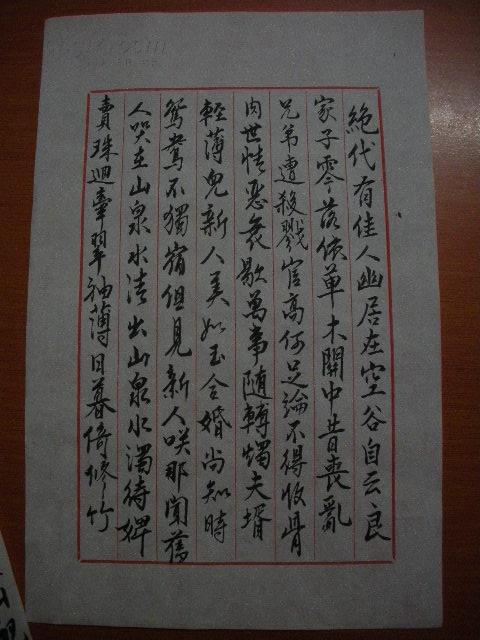 絶代有佳人幽居在空谷自云良
家子零落依草木關中昔喪亂
兄弟遭殺戮官高何足論不得收骨
肉世情惡衰歇萬事隨轉燭夫壻
輕薄兒新人美如玉合婚尚知時
鴛鴦不獨宿但見新人咲那聞舊
人哭在山泉水清出山泉水濁待婢
賣珠迴牽翠袖薄日暮倚修竹